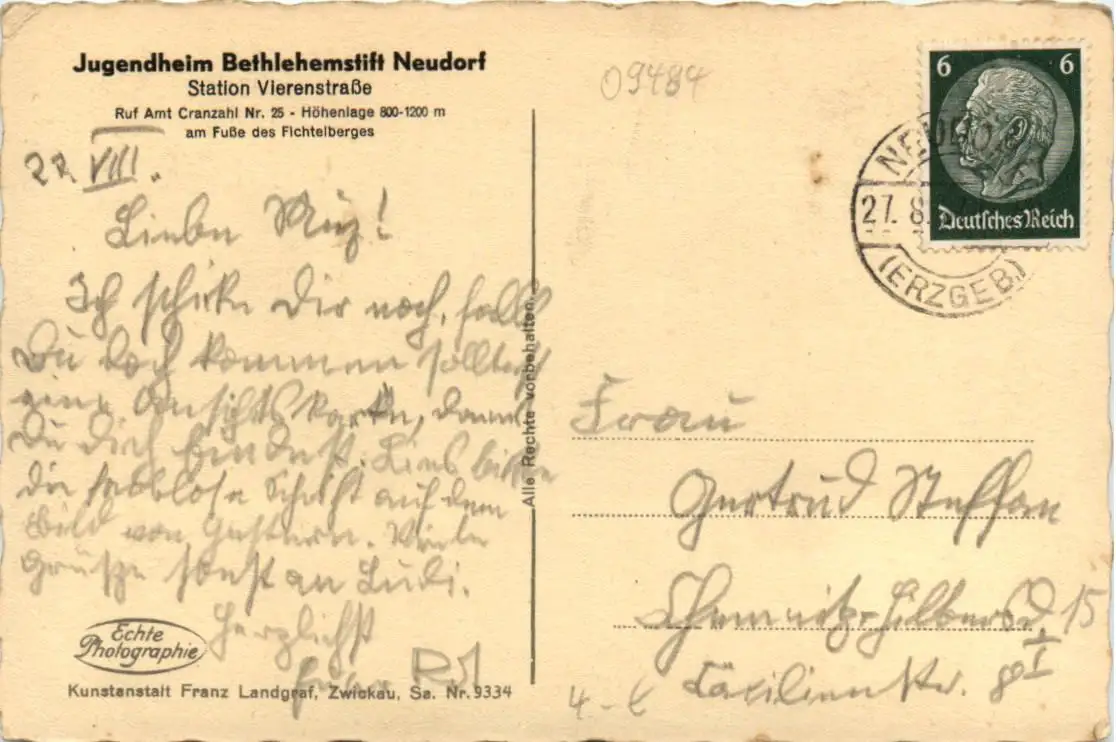 Jugendheim Bethlehemstift Neudorf
Station Vierenstraße
Ruf Amt Cranzahl Nr. 25 - Höhenlage 800-1200 m
am Fuße des Fichtelberges
27. VIII.
Ich schicke Dir noch, falls
Du doch kommen solltest
eine Ansichtskarte, damit
Du Dich findest. Lies bitte
die farblose Schrift auf dem
Bild von Gestern. Viele
Grüße sonst an Ludi.
Herzlichst
Echte
Photographie
Kunstanstalt Franz Landgraf, Zwickau, Sa. Nr. 9334
Alle Rechte vorbehalten.
09484
6 6
Deutsches Reich
27. 8.
(ERZGEB.)
Frau
Gertrud Steffan
Chemnitz-Hilbersd 15
Cäcilienstr. 8 I